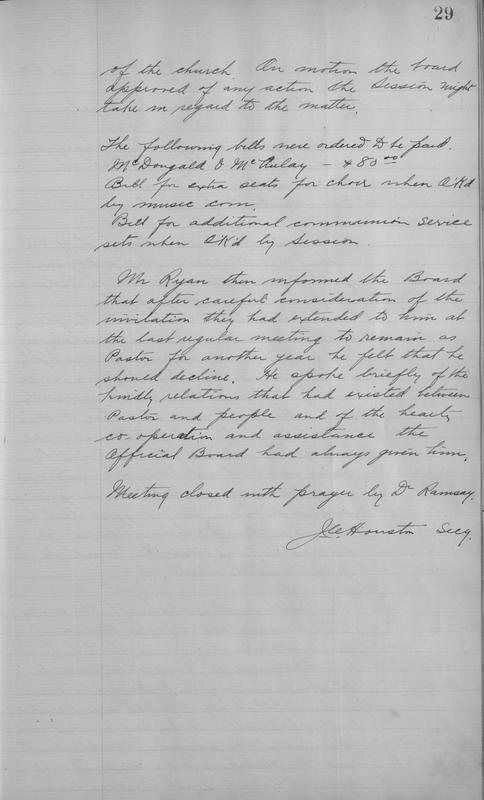 29
of the church. On motion the board
approved of any action the Session might
take in regard to the matter.
The following bills were ordered to be paid.
McDougald & McAulay - $80.00
Bill for extra seats for choir when O'K'd
by music com.
Bill for additional communion service
sets when O'K'd by Session.
Mr Ryan then informed the Board
that after careful consideration of the
invitation they had extended to him at
the last regular meeting to remain as
Pastor for another year he felt that he
should decline. He spoke briefly of the
kindly relations that had existed between
Pastor and people and of the hearty
co operation and assistance the
Official Board had always given him.
Meeting closed with prayer by Dr Ramsay.
Houston Secy.